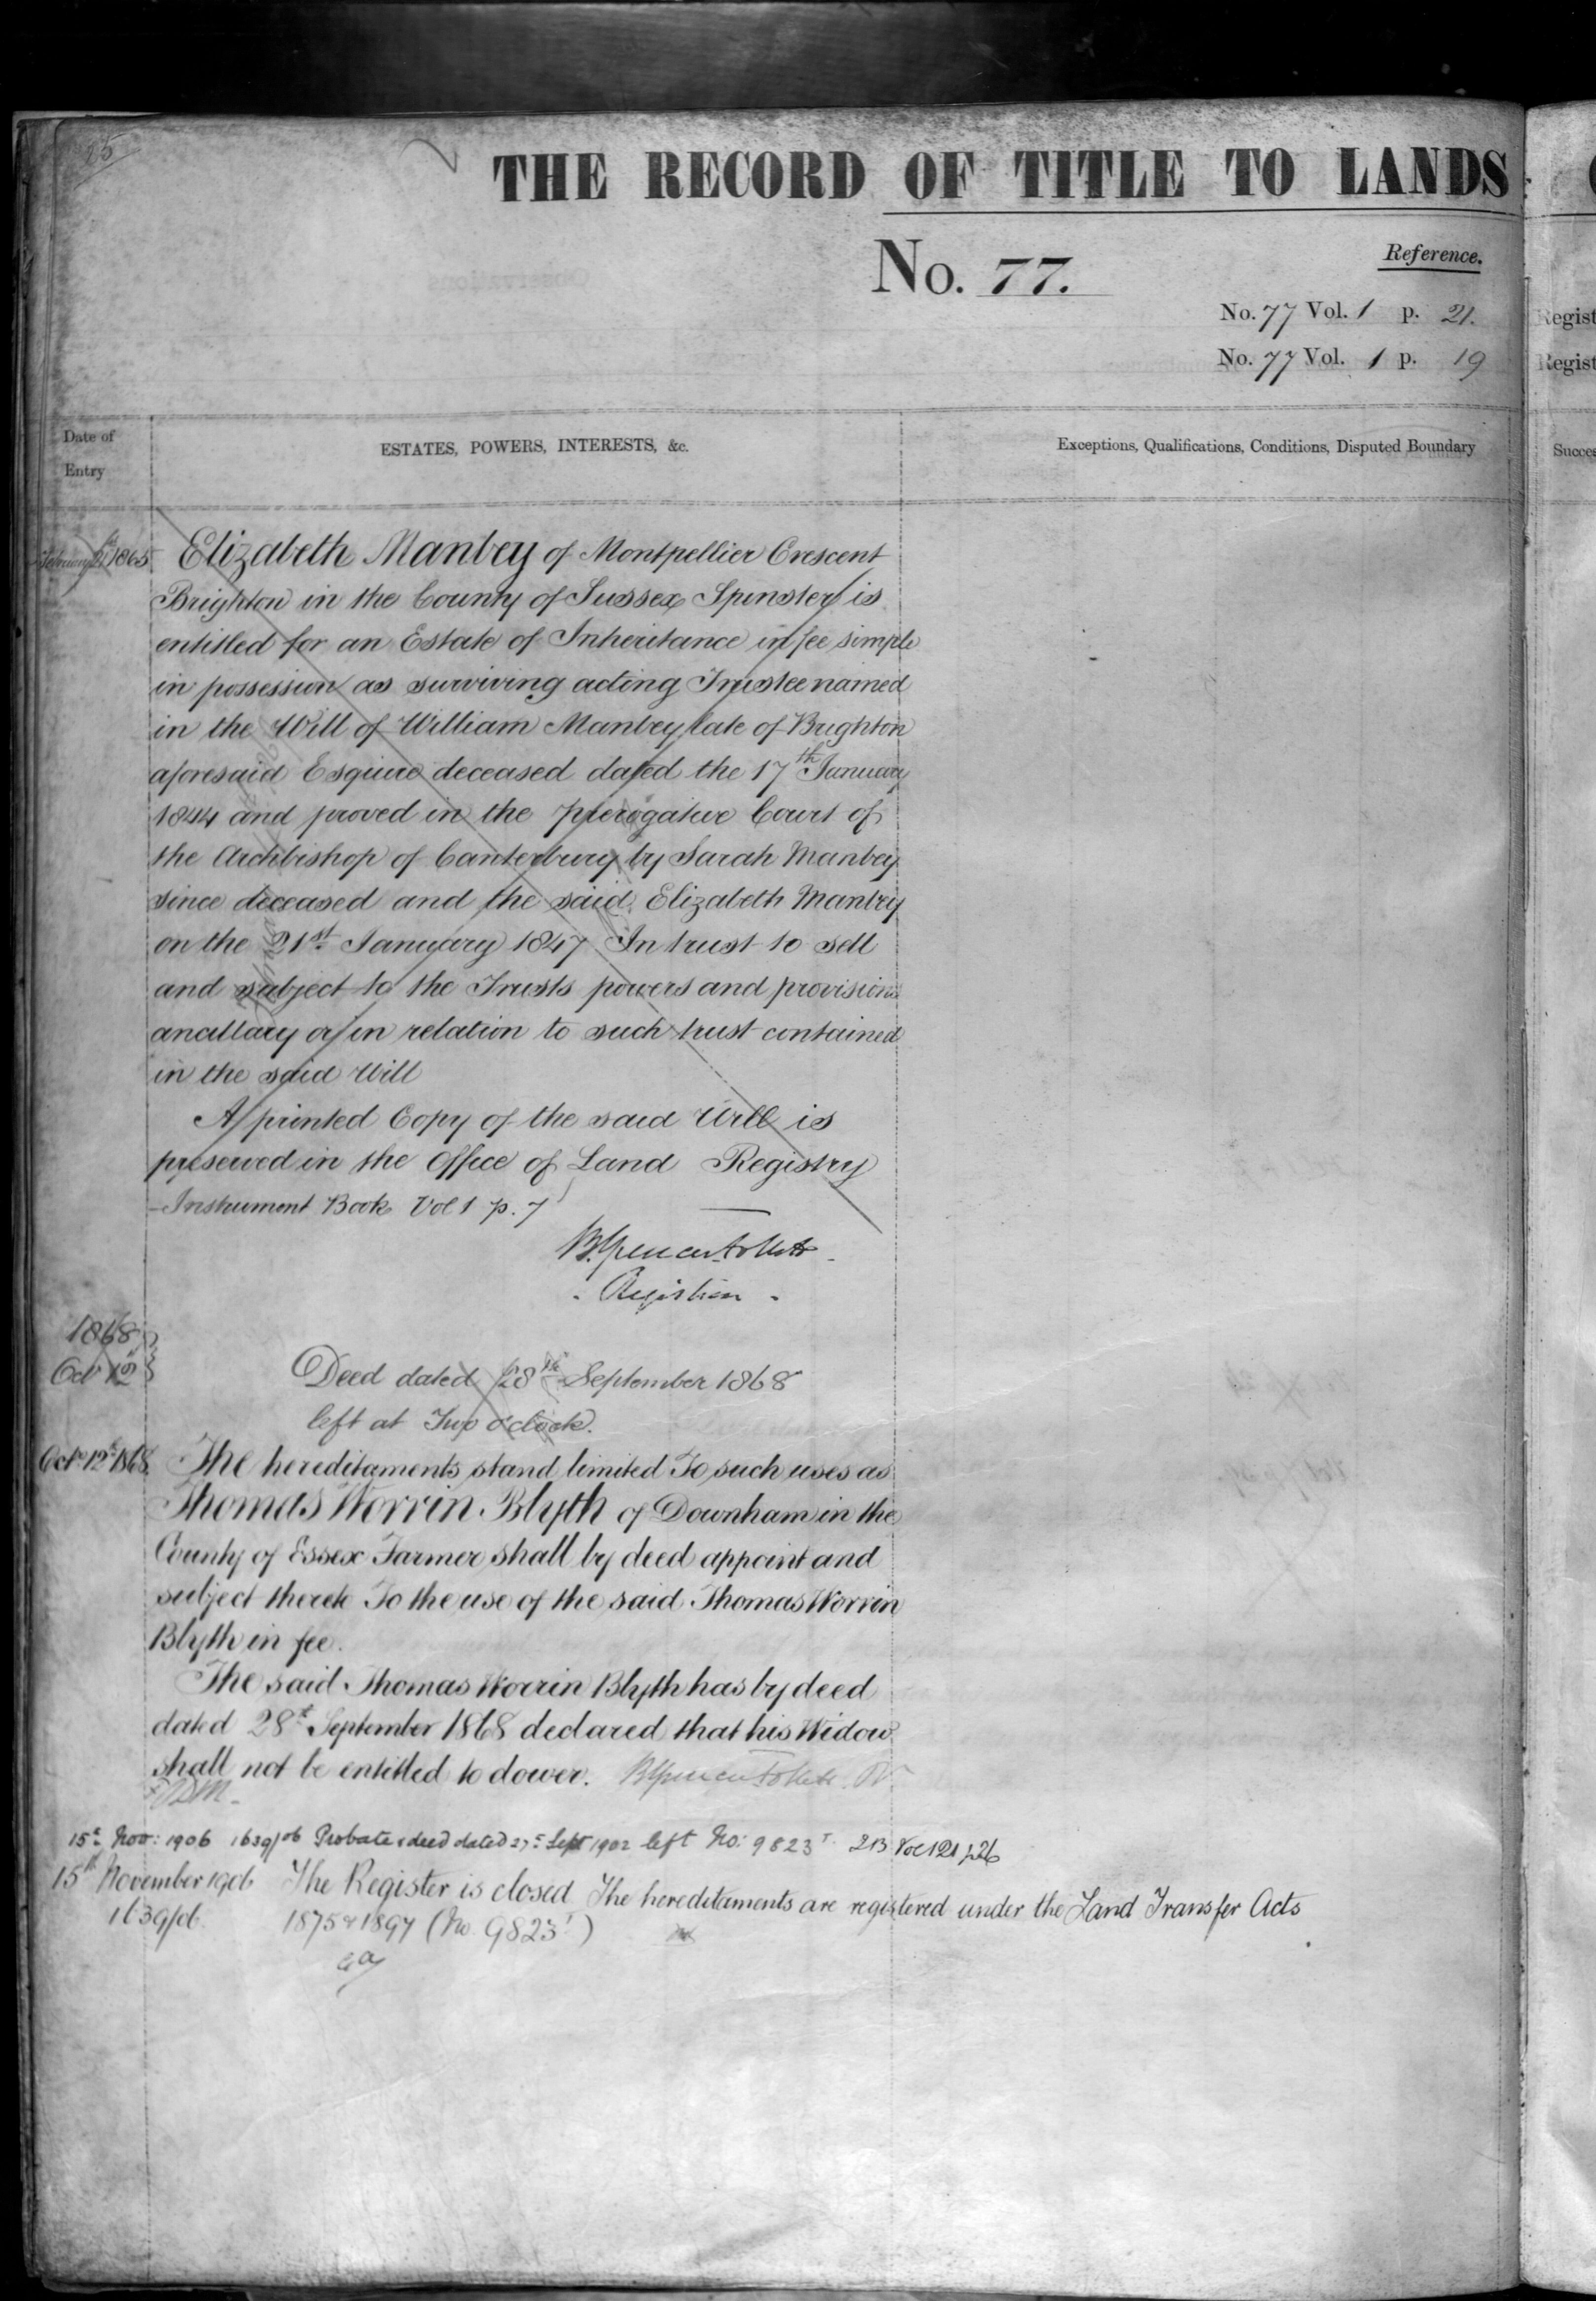 15
THE RECORD OF TITLE TO LANDS
No. 77.
Reference.
No. 77 Vol. 1 p. 21.
No. 77 Vol. 1 p. 19
Regist
Regist
Date of
Entry
ESTATES, POWERS, INTERESTS, &c.
Exceptions, Qualifications, Conditions, Disputed Boundary
Succes
February 1865
Elizabeth Manbey of Montpellier Crescent
Brighton in the County of Sussex Spinster is
entitled for an Estate of Inheritance in fee simple
in possession as surviving acting Trustee named
in the Will of William Manbey late of Brighton
aforesaid Esquire deceased dated the 17th January
1844 and proved in the prerogative Court of
the Archbishop of Canterbury by Sarah Manbey
since deceased and the said Elizabeth Manbey
on the 21st January 1847 In trust to sell
and subject to the Trusts powers and provisions
ancillary or in relation to such trust contained
in the said Will
A printed Copy of the said Will is
preserved in the Office of Land Registry
Instrument Book Vol 1 p. 7
Registrar
1868
Oct 12th
Deed dated 28th September 1868
left at Two o'clock.
Octr 12th 1868
The hereditaments stand limited To such uses as
Thomas Worrin Blyth of Downham in the
County of Essex Farmer shall by deed appoint and
subject thereto To the use of the said Thomas Worrin
Blyth in fee.
The said Thomas Worrin Blyth has by deed
dated 28th September 1868 declared that his Widow
shall not be entitled to dower.
15th Nov: 1906 1639/06 Probate & deed dated 27th Sept 1902 left No: 9823 213 Vol 121 p26
15th November 1906 The Register is closed The hereditaments are registered under the Land Transfer Acts
1639/06. 1875 & 1897 (No 9823)